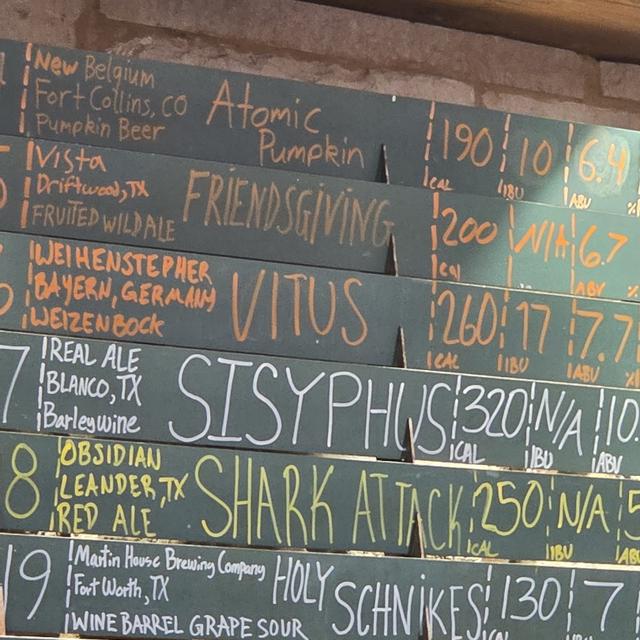 New Belgium
Fort Collins, CO
Pumpkin Beer
Atomic
Pumpkin
190
CAL
10
IBU
6.4
ABV
%
Vista
Driftwood, TX
FRUITED WILD ALE
FRIENDSGIVING
200
CAL
N/A
6.7
ABV
%
WEIHENSTEPHER
BAYERN, GERMANY
WEIZENBOCK
VITUS
260
CAL
17
IBU
7.7
ABV
7
REAL ALE
BLANCO, TX
Barleywine
SISYPHUS
320
CAL
N/A
IBU
10.
ABV
8
OBSIDIAN
LEANDER, TX
RED ALE
SHARK ATTACK
250
CAL
N/A
IBU
5
AB
19
Martin House Brewing Company
Fort Worth, TX
WINE BARREL GRAPE SOUR
HOLY
SCHNiKES
130
CAL
7
IBU